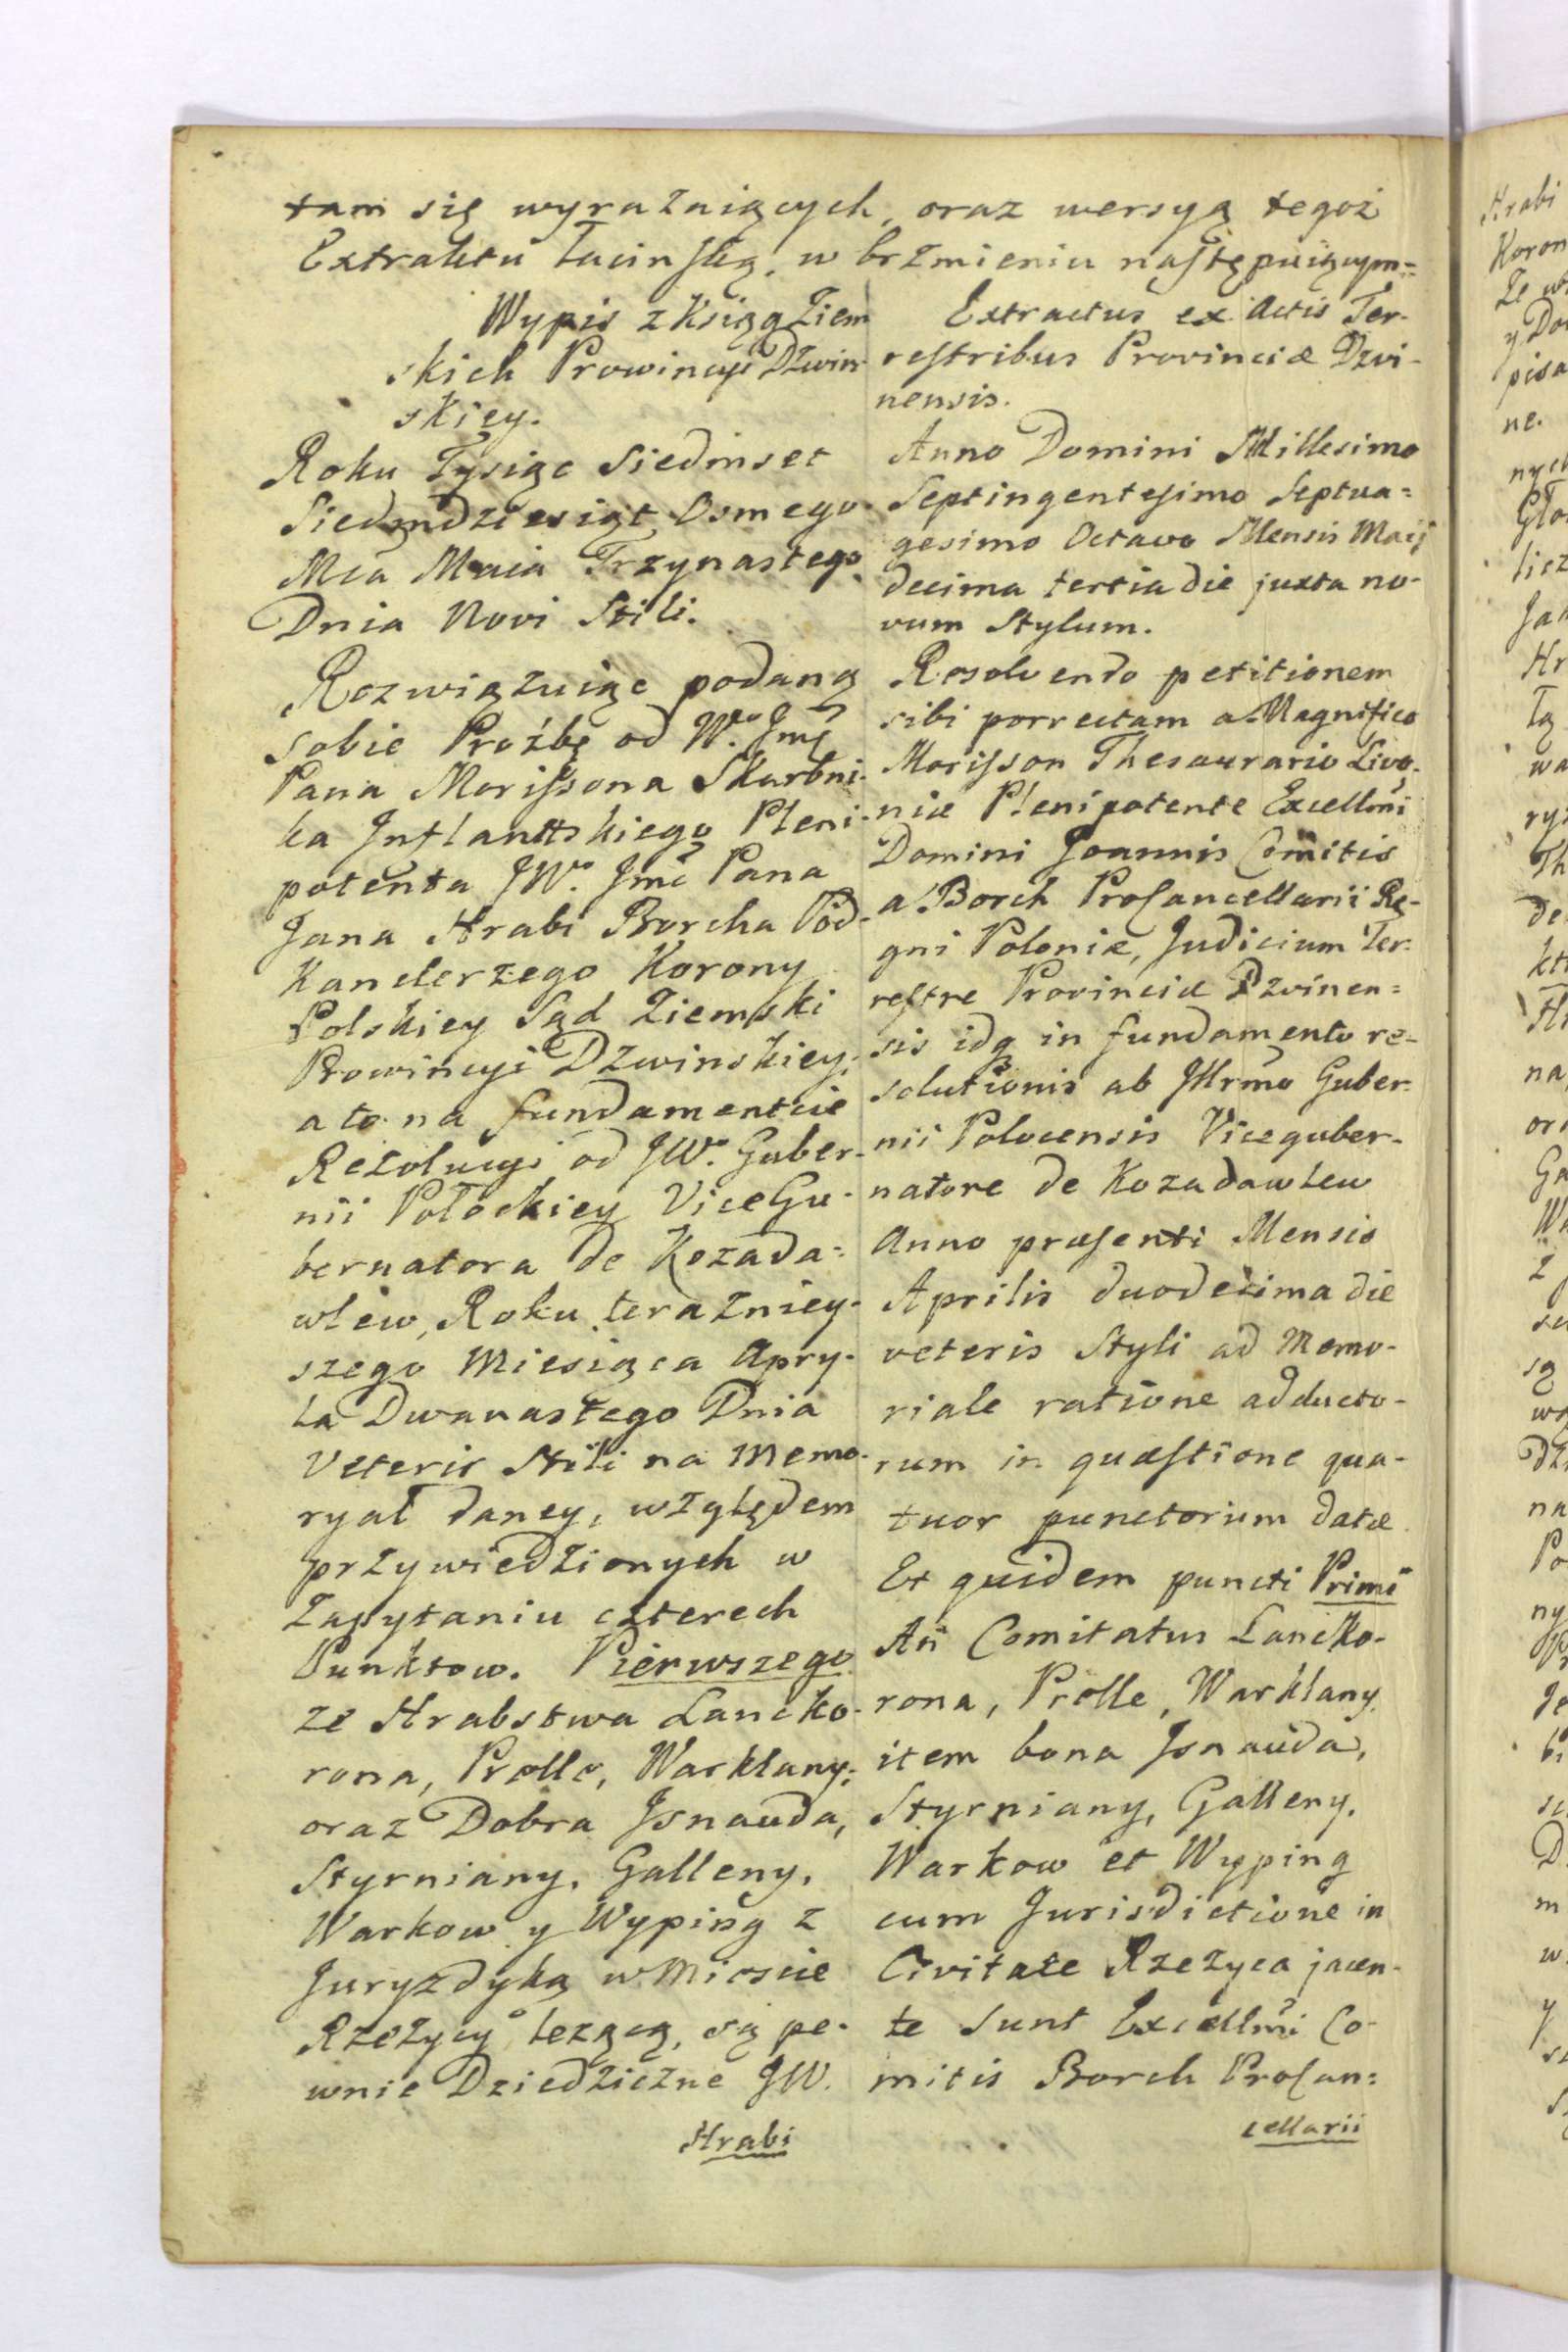 tam się wyrażaiących, oraz wersyą tegoż
Extraktu łacinską, w brzmieniu następuiącym=
Wypis z Ksiąg Ziem
skich Prowincyi Dzwin-
skiey.
Roku Tysiąc Siedmset
Siedmdziesiąt Osmego
Mca Maia Trzynastego
Dnia Novi Stili.
Rozwiązuiąc podaną
sobie Proźbę od Wo. Jmć
Pana Morissona Skarbni-
ka Inflanttskiego Pleni-
potenta JWo. Jmć Pana
Jana Hrabi Borcha Pod-
Kanclerzego Korony
Polskiey Sąd Ziemski
Prowincyi Dzwinskiey,
a to na fundamencie
Rezolucyi od JWo. Guber-
nii Połockiey ViceGu-
bernatora de Kozada=
wlew, Roku teraźniey-
szego Miesiąca Apry-
la Dwanastego Dnia
Veteris Stili na Memo-
ryał daney, względem
przywiedzionych w
Zapytaniu czterech
Punktow. Pierwszego
ze Hrabstwa Lancko-
rona, Prelle, Warklany,
oraz Dobra Isnauda,
Styrniany, Galleny,
Warkow y Wyping z
Juryzdyką w Miescie
Rzeżycy leżącą, są pe-
wnie Dziedziczne JW.
Hrabi
Extractus ex Actis Ter-
restribus Provinciæ Dzvi-
nensis.
Anno Domini Millesimo
Septingentesimo Septua=
gesimo Octavo Mensis Maij
decima tertia die juxta no-
vum Stylum.
Resolvendo petitionem
sibi porrectam a Magnifico
Morisson Thesaurario Livo-
niæ Plenipotente Excellmi
Domini Joannis Comitis
a Borch Procancellarii Re-
gni Poloniæ, Judicium Ter-
restre Provinciæ Dzvinen=
sis idq in fundamento re-
solutionis ab Illrmo Guber-
nii Polocensis Viceguber-
natore de Kozadawlew
Anno præsenti Mensis
Aprilis duodecima die
veteris Styli ad Memo-
riale ratione adducto-
rum in quæstione qua-
tuor punctorum datæ
Et quidem puncti Primi
An Comitatus Lancko-
rona, Prelle, Warklany
item bona Isnauda,
Styrniany, Galleny,
Warkow et Wyping
cum Jurisdictione in
Civitate Rzezyca jacen-
te sunt Excellmi Co-
mitis Borch Procan=
cellarii
Hrabi
Koron
że w
y Do
pisa
ne.
nych
licz
Jan
Hr
wa
na